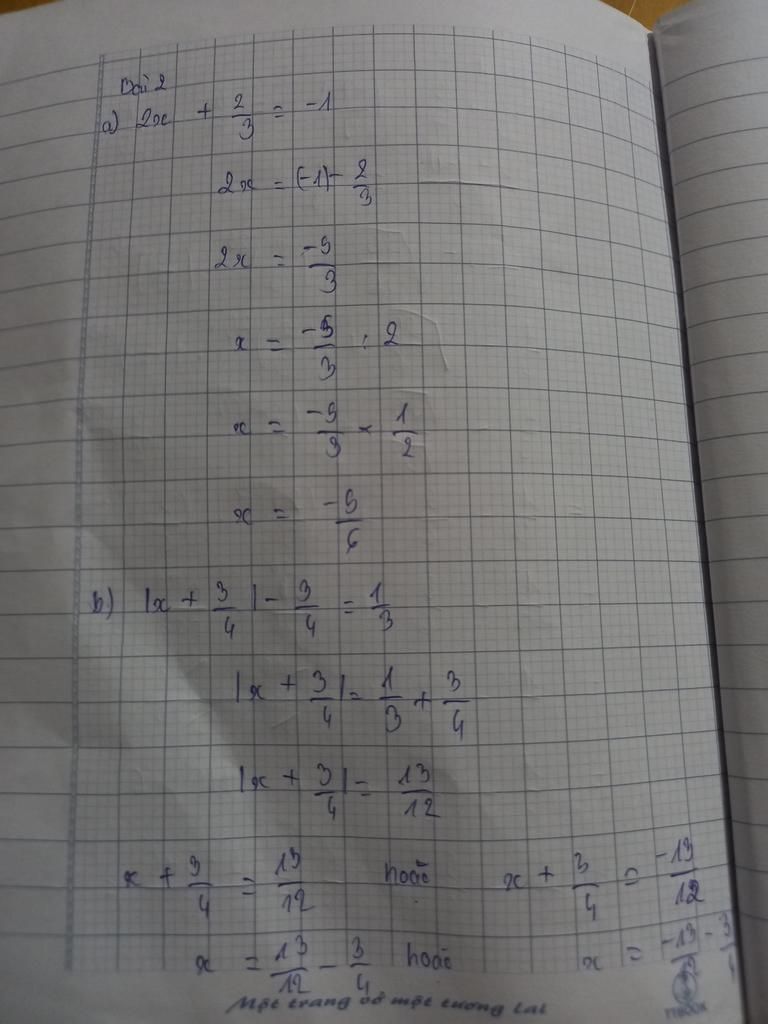 Bài 2
a) 2x + 2/3 = -1
2x = (-1) - 2/3
2x = -5/3
x = -5/3 : 2
x = -5/3 × 1/2
x = -5/6
b) |x + 3/4| - 3/4 = 1/3
|x + 3/4| = 1/3 + 3/4
|x + 3/4| = 13/12
x + 3/4 = 13/12 hoặc x + 3/4 = -13/12
x = 13/12 - 3/4 hoặc x = -13/12 - 3/4